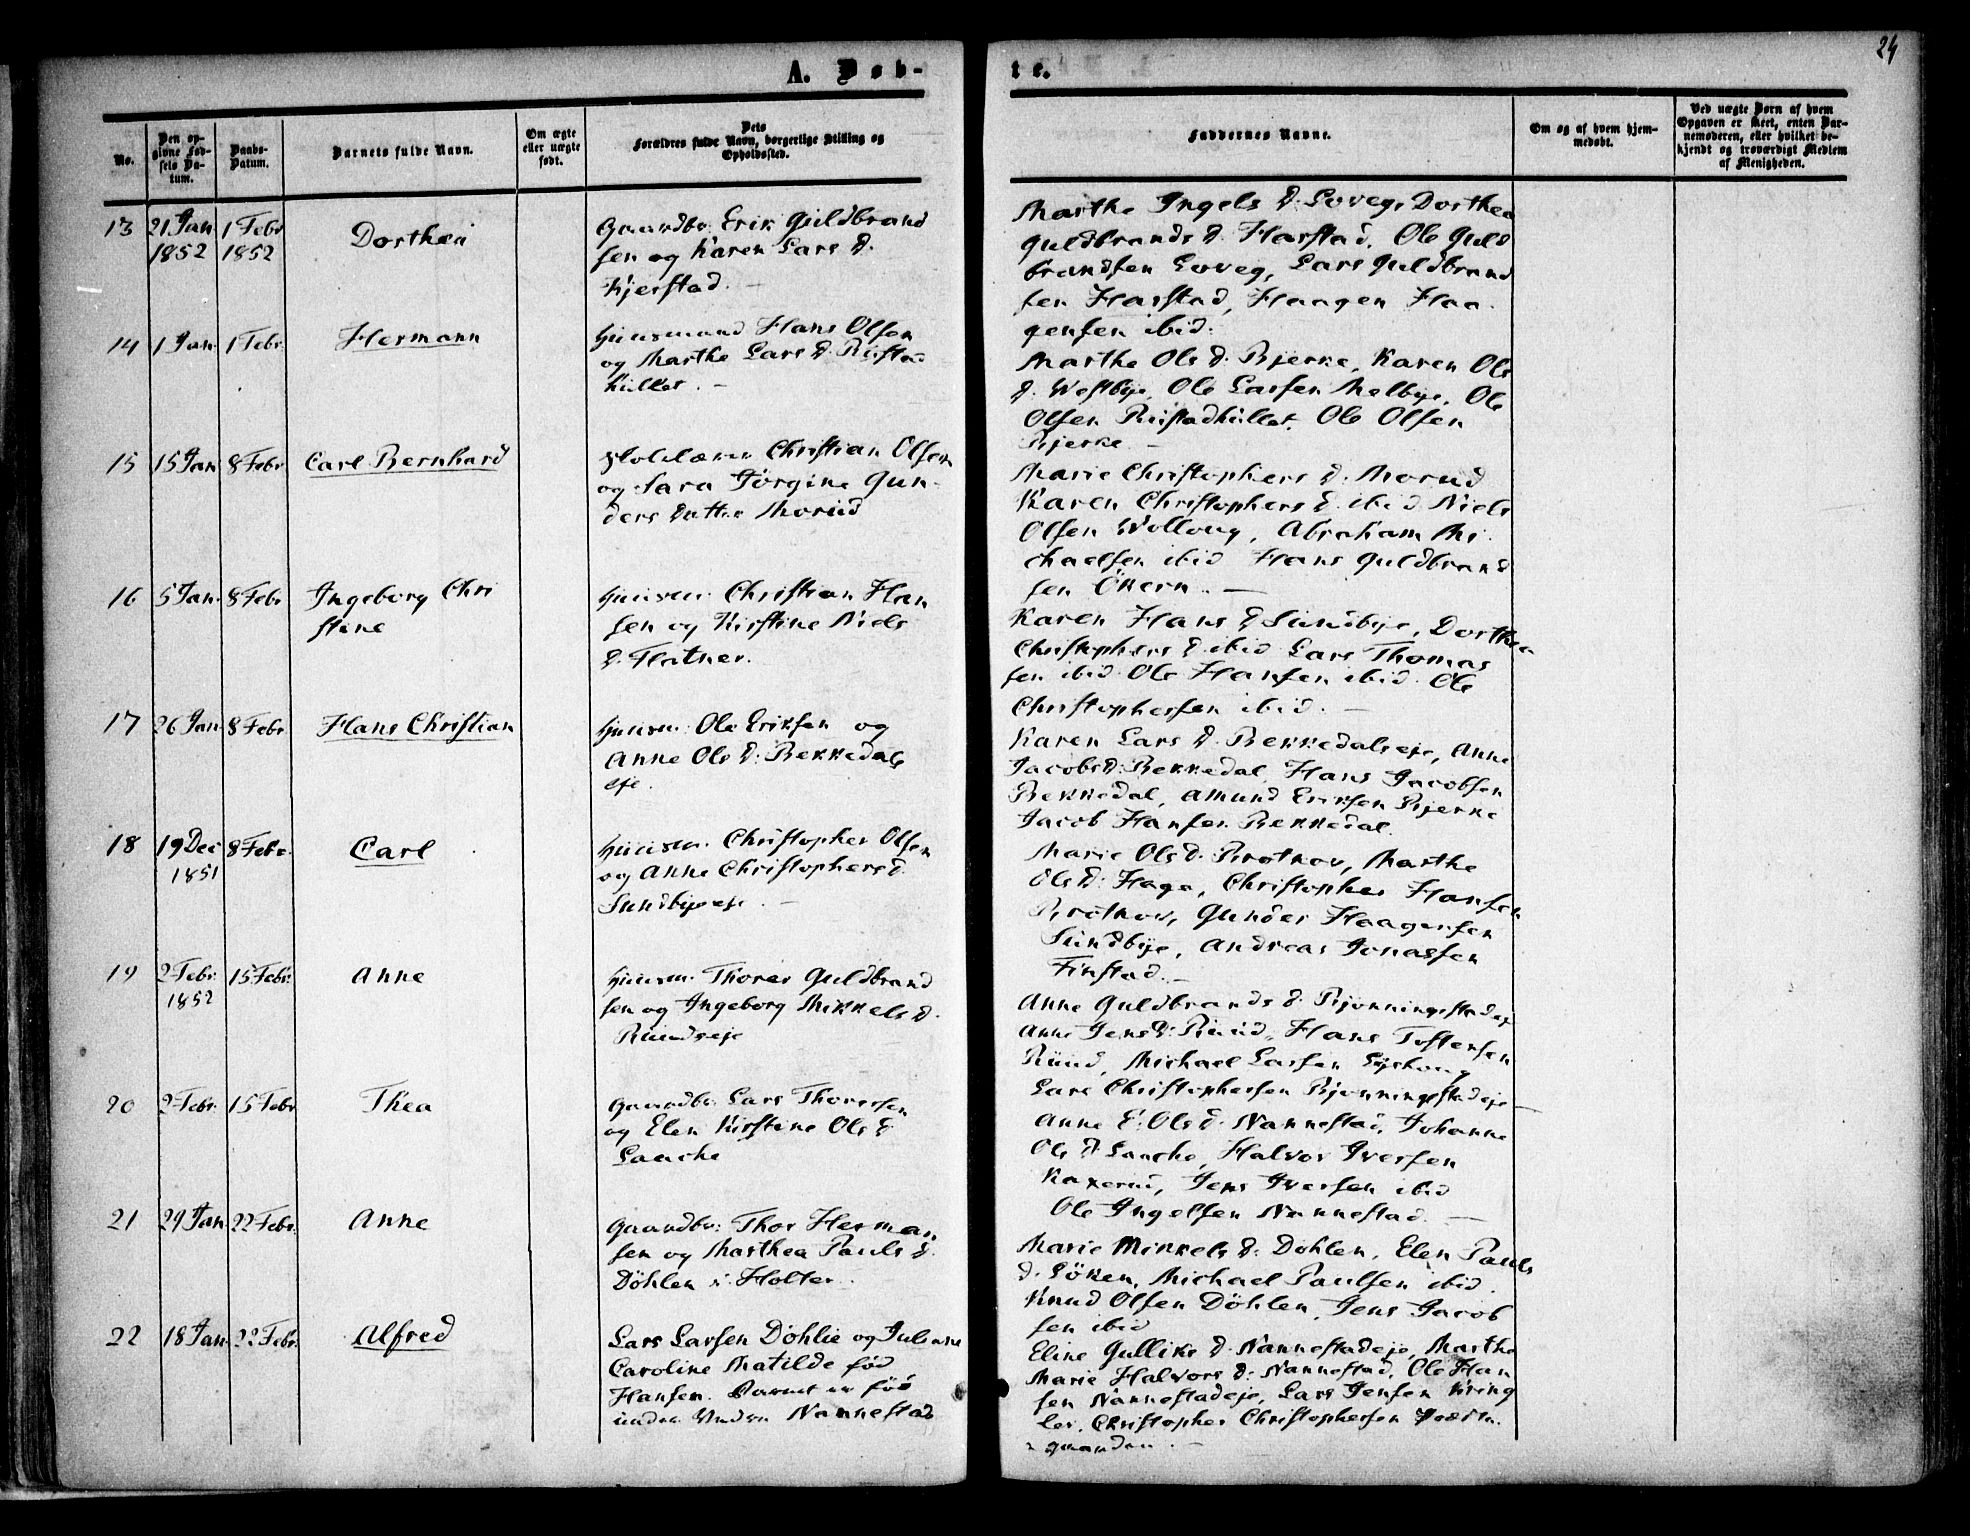 24
A. Døb-
te.
No.
Den op-
givne Fød-
sels Da-
tum.
Daabs-
Datum.
Barnets fulde Navn.
Om ægte
eller uægte
født.
Dets
Forældres fulde Navn, borgerlige Stilling og
Opholdssted.
Faddernes Navne.
Om og af hvem hjem-
medøbt.
Ved uægte Børn af hvem
Opgaven er skeet, enten Bar-
nemoderen, eller hvilket be-
kjendt og troværdigt Medlem
af Menigheden.
13
21 Jan
1852
1 Febr
1852
Dorthea
Gaardbr. Erik Guldbrand
sen og Karen Lars D.
Kjerstad. —
Marthe Ingels D. Loveg, Dorthea
Guldbrands D. Harstad, Ole Guld
brandsen Loveg, Lars Guldbrand
sen Harstad, Haagen Haa-
gensen ibid.
14
1 Jan
1 Febr.
Hermann
Huusmand Hans Olsen
og Marthe Lars D.
Marthe Ols D. Bjerke, Karen Ols
D. Westbye, Ole Larsen Melbye, Ole
Olsen Ole Olsen
Bjerke —
15
15 Jan
8 Febr
Carl Bernhard
Skolelærer Christian Olsen
og Sara Jörgine Gun-
ders Datter Morud
Marie Christophers D. Morud
Karen Christophers D. ibid Niels
Olsen Wolloug, Abraham Mi-
chaelsen ibid Hans Guldbrand
sen Ökern. —
16
5 Jan.
8 Febr
Ingeborg Chri
stine
Huusm. Christian Han
sen og Kirstine Niels
D. Flatner.
Karen Hans D Sundbye, Dorthea
Christophers D. ibid Lars Thomas
sen ibid. Ole Hansen ibid. Ole
Christophersen ibid. —
17
26 Jan
8 Febr
Hans Christian
Huusm. Ole Eriksen og
Anne Ols D. Bekkedals
eje.
Karen Lars D. Bekkedalseje, Anne
Jacobs D. Bekkedal, Hans Jacobsen
Bekkedal, Amund Eriksen Bjerke
Jacob Hansen Bekkedal.
18
19 Dec
1851
8 Febr.
Carl
Huusm. Christopher Olsen
og Anne Christophers D.
Sundbyeeje. —
Marie Ols D. Brotkov, Marthe
Ols D. Haga, Christopher Hansen
Brotkov, Gunder Haagensen
Sundbye, Andreas Jonassen
Finstad. —
19
2 Febr.
1852
15 Febr.
Anne
Huusm. Thorer Guldbrand
sen og Ingeborg Mikkels D.
Ruudseje
Anne Guldbrands D. Bjonningstadeje
Anne Jens D. Ruud, Hans Tostensen
Ruud, Michael Larsen
Lars Christophersen Bjonningstadeje —
20
2 Febr.
15 Febr
Thea
Gaardbr. Lars Thorersen
og Elen Kirstine Ols D
Lauche
Anne E. Ols D. Nannestad, Johanne
Ols D. Lauche, Halvor Iversen
Kaxerud, Jens Iversen ibid
Ole Ingelsen Nannestad. —
21
24 Jan
22 Febr.
Anne
Gaardbr. Thor Herman
sen og Marthea Pauls D.
Döhlen i Holter.
Marie Mikkels D. Döhlen, Elen Pauls
D. Göken, Michael Paulsen ibid.
Knud Olsen Döhlen, Jens Jacob
sen ibid
22
18 Jan
22 Febr.
Alfred
Lars Larsen Döhlie og Juliane
Caroline Matilde fød
Hansen. Barnet er født
Nannestad
Eline Gulliks D. Nannestadeje, Marthe
Marie Halvors D. Nannestad, Ole Han
sen Nannestadeje, Lars Jensen Kring
ler, Christopher Christophersen Præste-
gaarden. —